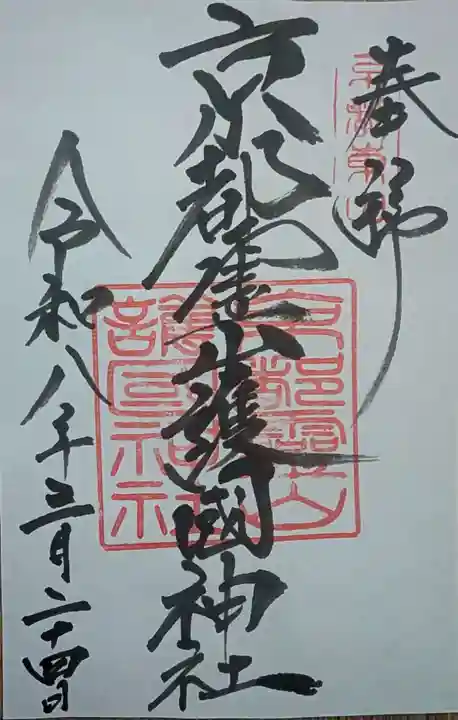 奉拝
京都霊山護國神社
令和八年三月二十四日
京都霊山護國神社